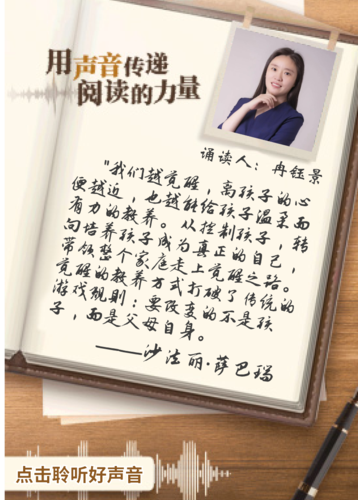 用声音传递
阅读的力量
诵读人：冉钰景
“我们越觉醒，离孩子的心
便越近，也越能给孩子温柔而
有力的教养。从控制孩子，转
向培养孩子成为真正的自己，
带领整个家庭走上觉醒之路。
觉醒的教养方式打破了传统的
游戏规则：要改变的不是孩
子，而是父母自身。
——沙法丽·萨巴瑞
点击聆听好声音